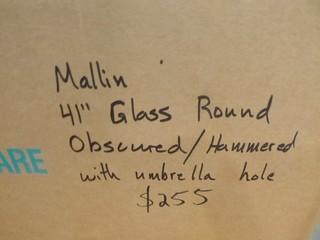 Mallin
41" Glass Round
Obscured/Hammered
ARE
with umbrella hole
$255